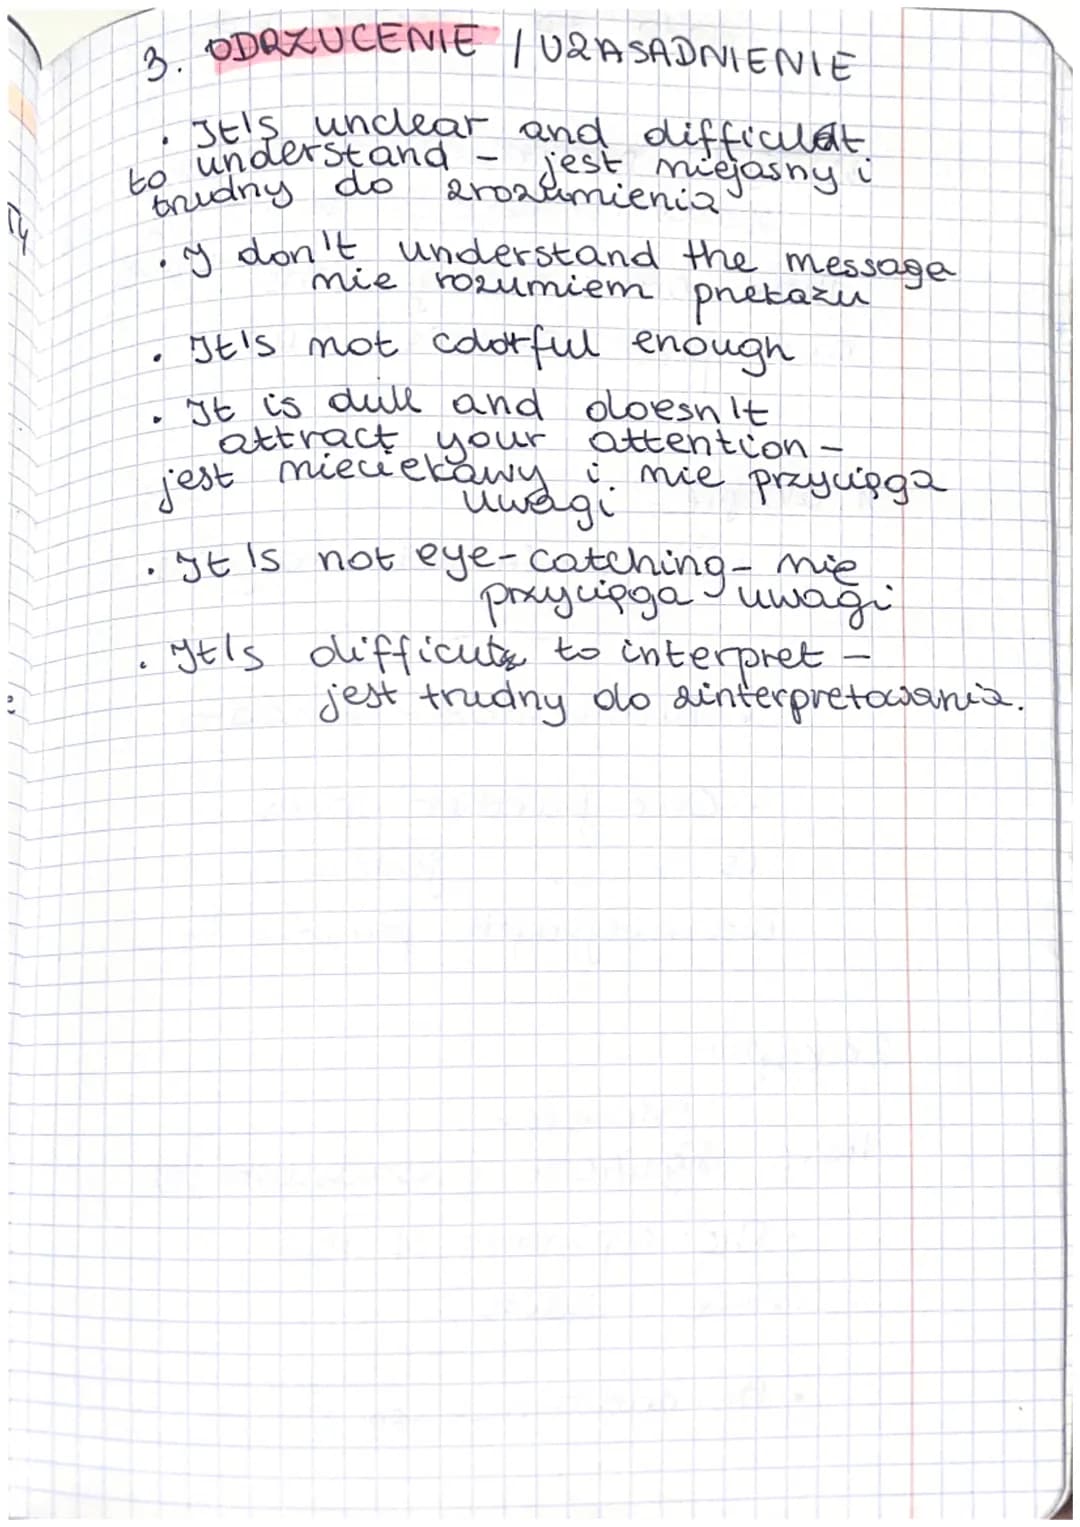 3. ODRZUCENIE / UZASADNIENIE
• It's unclear and difficult
to understand - jest niejasny i
trudny do zrozumienia
• I don't understand the message
nie rozumiem przekazu
• It's not colorful enough
• It is dull and doesn't
attract your attention -
jest nieciekawy i nie przyciąga
uwagi
• It's not eye-catching - nie
przyciąga uwagi
• It's difficult to interpret -
jest trudny do zinterpretowania.